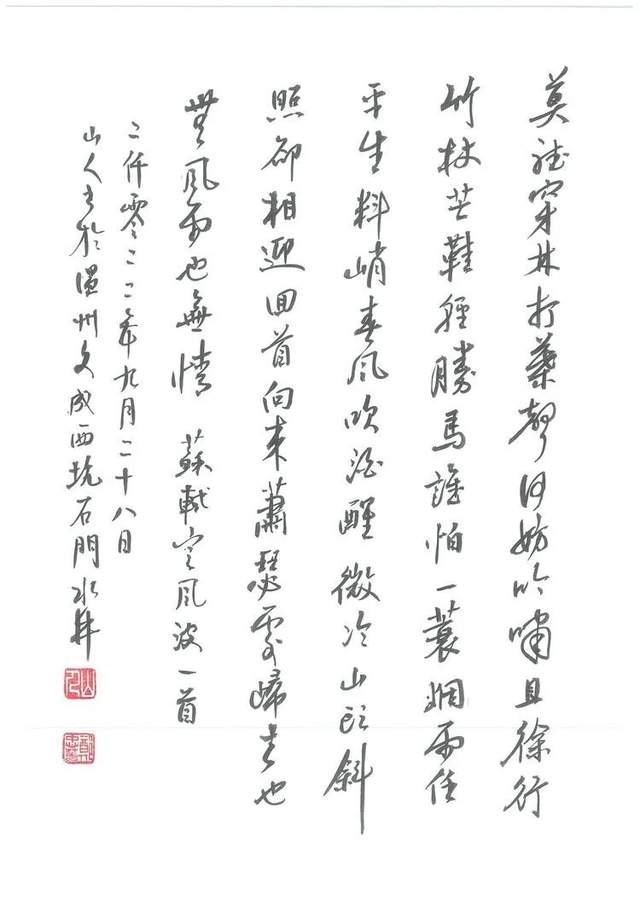 莫聽穿林打葉聲何妨吟嘯且徐行
竹杖芒鞋輕勝馬誰怕一蓑烟雨任
平生料峭春風吹酒醒微冷山頭斜
照卻相迎回首向來蕭瑟處歸去也
無風雨也無情 蘇軾定風波一首
二仟零二二年九月二十八日
山人書於溫州文成西坑石門水
山人